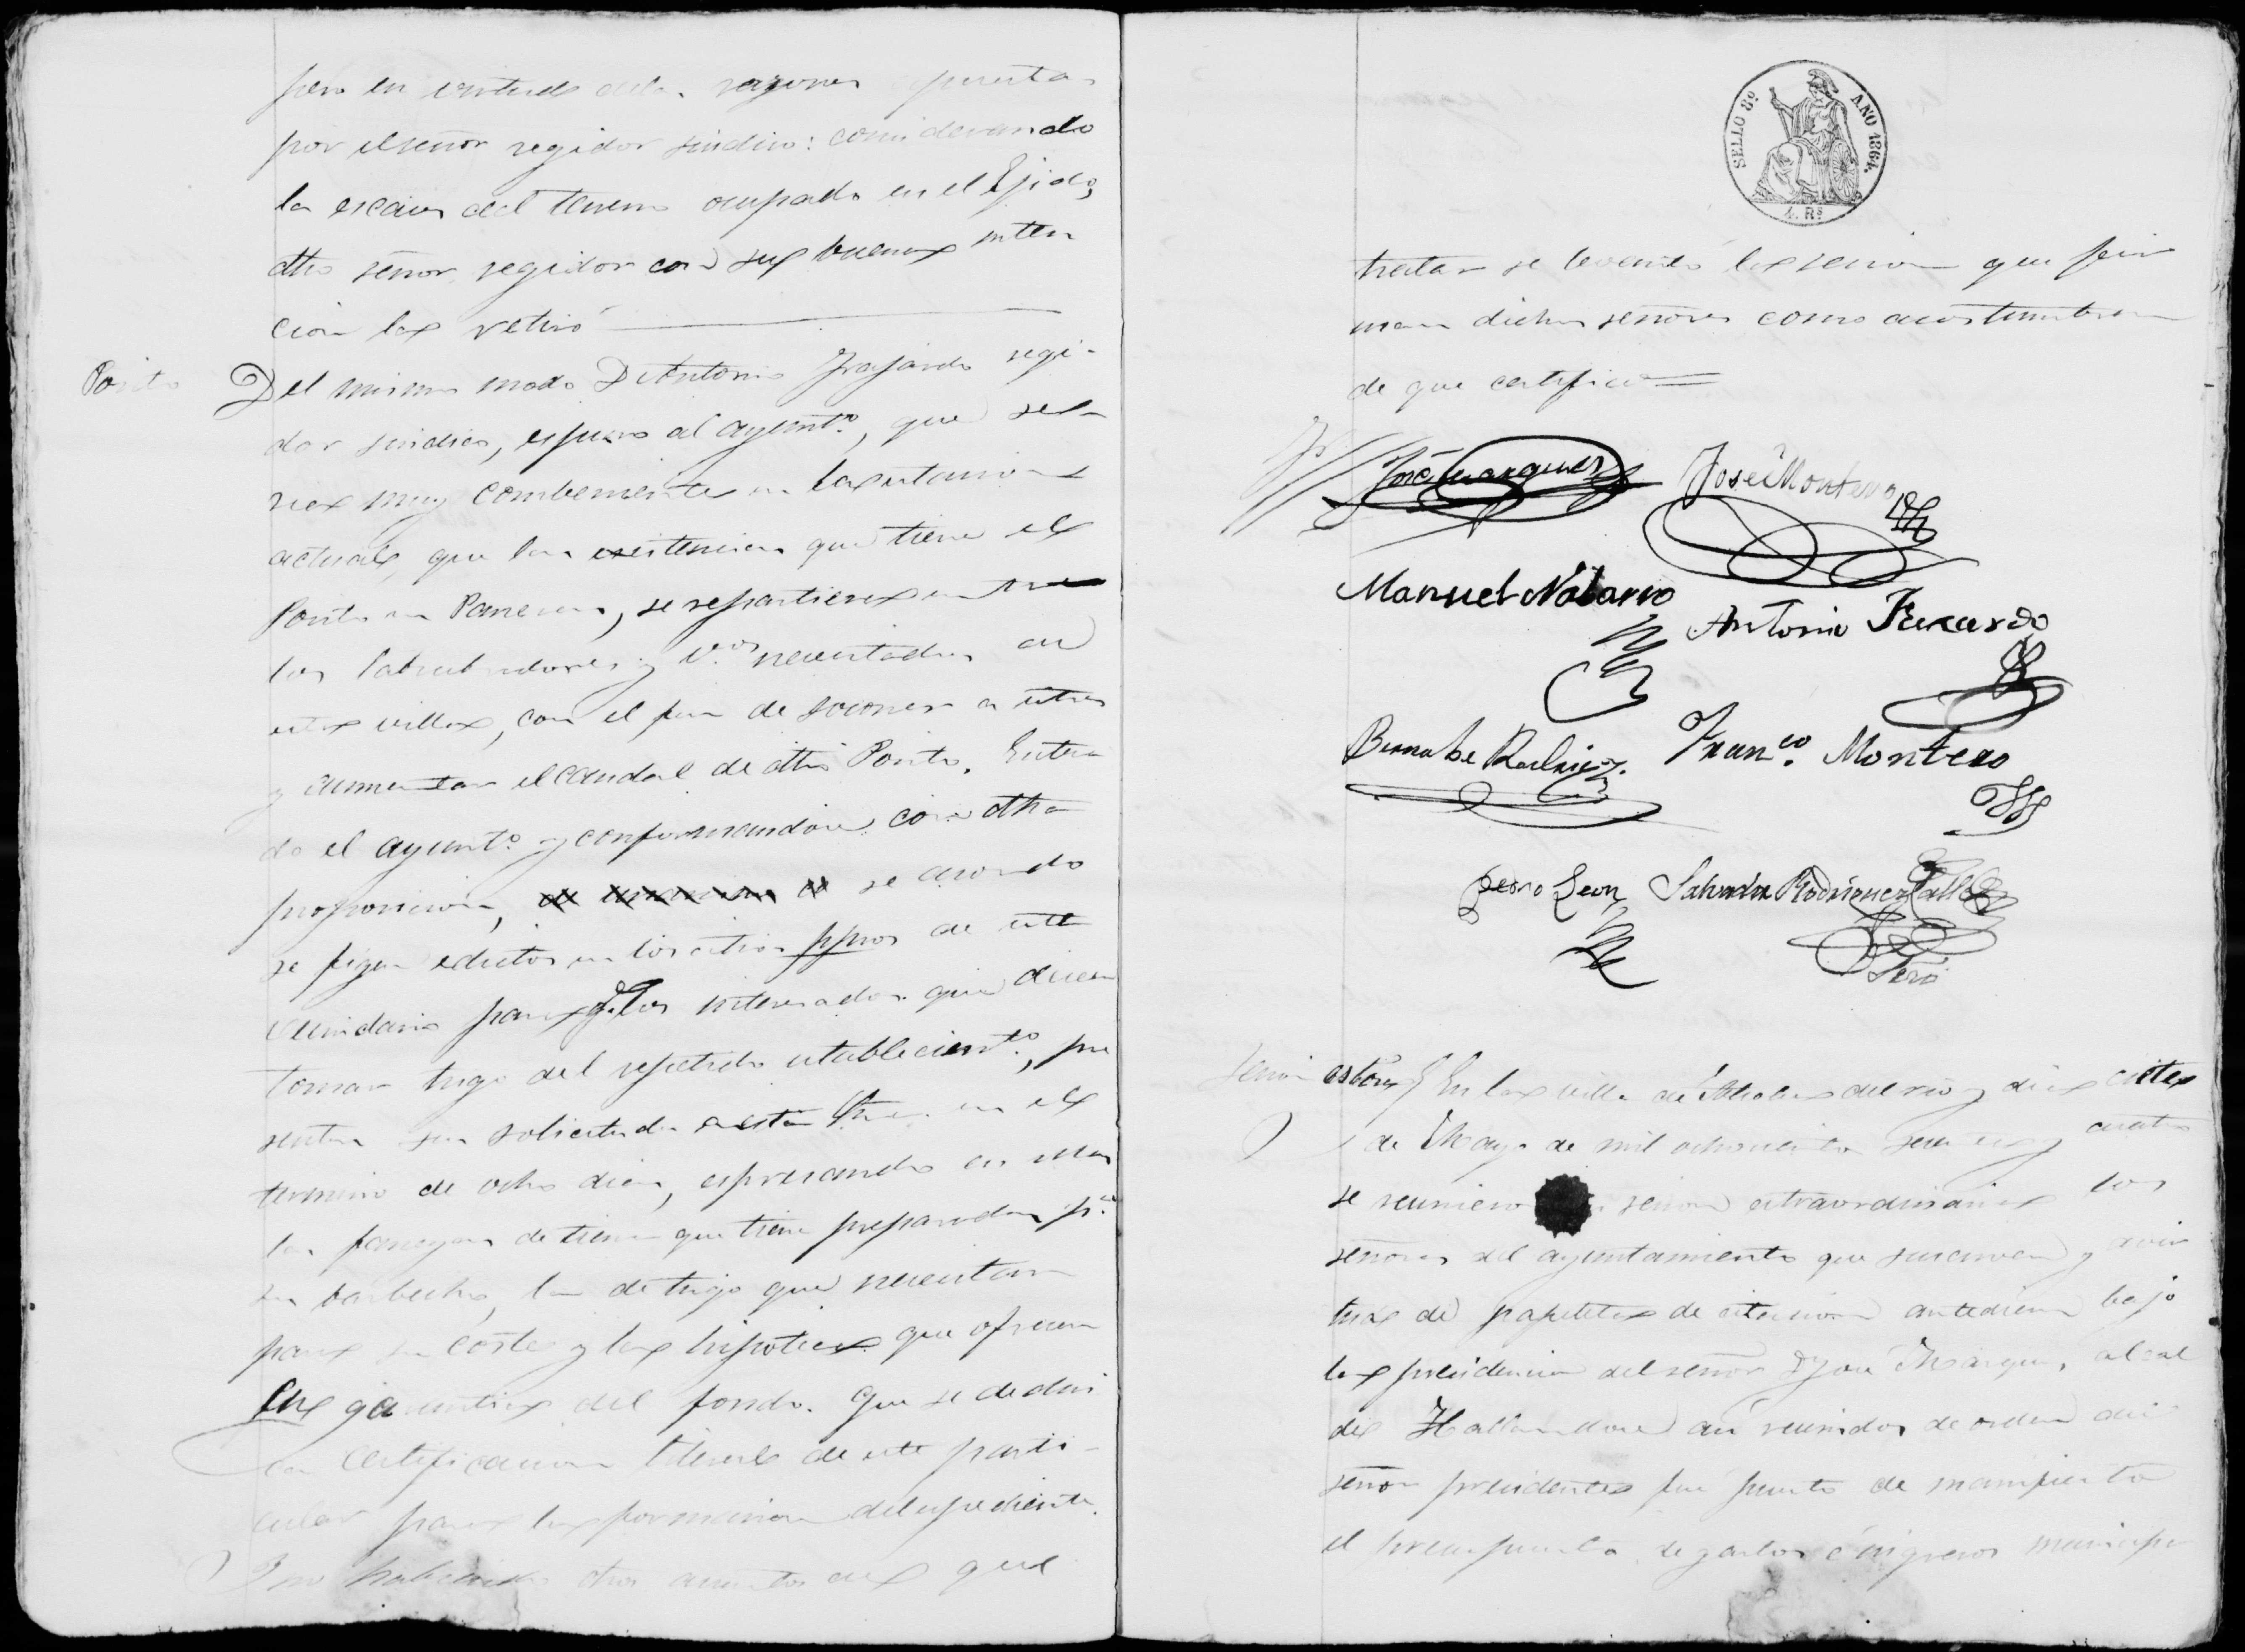 pero en virtud de las razones espuestas
por el señor regidor sindico: considerando
la escases del terreno ocupado en el Ejido,
dho señor regidor con sus buenas inten
cion las retiró
Posito
Del mismo modo D. Antonio Fajardo regi-
dor sindico, espuso al ayunt.º, que se
ria muy combeniente en la estacion
actual, que las existencias que tiene el
Posito en Paneras, se repartiesen entre
los labradores y v.os necesitados de
esta villa, con el fin de socorrer a estos
y aumentar el caudal de dho Posito. Entera
do el ayunt.º y conformandose con dha
proposicion, se acordo
se fijen edictos en los sitios ppcos de este
vecindario para q.e los interesados que deseen
tomar trigo del repetido establecient.º, pre
senten sus solicitudes a esta en el
termino de ocho dias, espresando en ellas
las fanegas de tierra que tiene preparadas p.a
su barbecho, las de trigo que necesitan
para su coste y las hipotecas que ofrecen
en garantia del fondo. Que se dedusi
ca certificacion literal de este parti-
cular para la formacion del espediente.
Y no habiendo otros asuntos de que
SELLO 8º AÑO 1864.
4. Rs
tratar se levantó la sesion que fir
man dichos señores como acostumbran
de que certifico=
José Marquez
José Montero
Manuel Notario
Antonio Faxardo
Bernabe Rodriguez
Fran.co Montero
Pedro Leon
Salvador Rodriguez Calle
Srio
Sesion estra.
En la villa de del rio y dia siete
de Mayo de mil ochocientos sesenta y cuatro
se reunieron en sesion extraordinaria los
señores del ayuntamiento que suscriven y avir
tud de papeleta de citacion antediem bajo
la presidencia del señor D. José Marquez, alcal
de. Hallandose asi reunidos de orden del
señor presidente fue puesto de manifiesto
el presupuesto de gastos é ingresos municipa